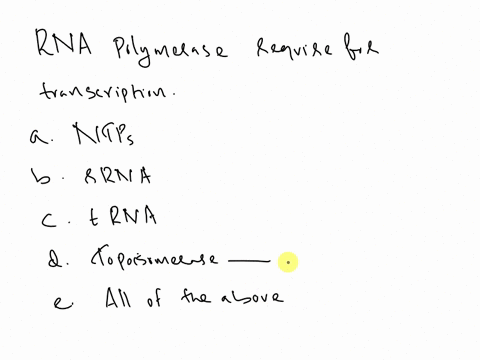 RNA Polymerase require for
transcription.
a. NTPs
b. rRNA
c. tRNA
d. Topoisomerase
e. All of the above